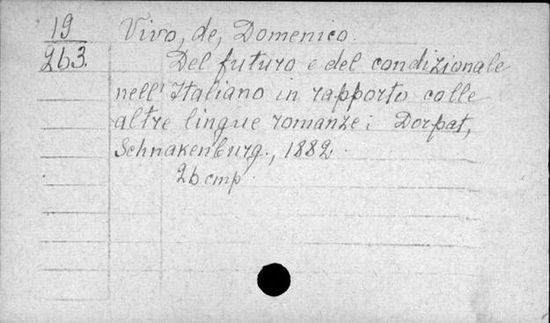 19
263.
Vivo, de, Domenico.
Del futuro e del condizionale
nell' Italiano in rapporto colle
altre lingue romanze; Dorpat,
Schnakenburg., 1882.
26 cmp.